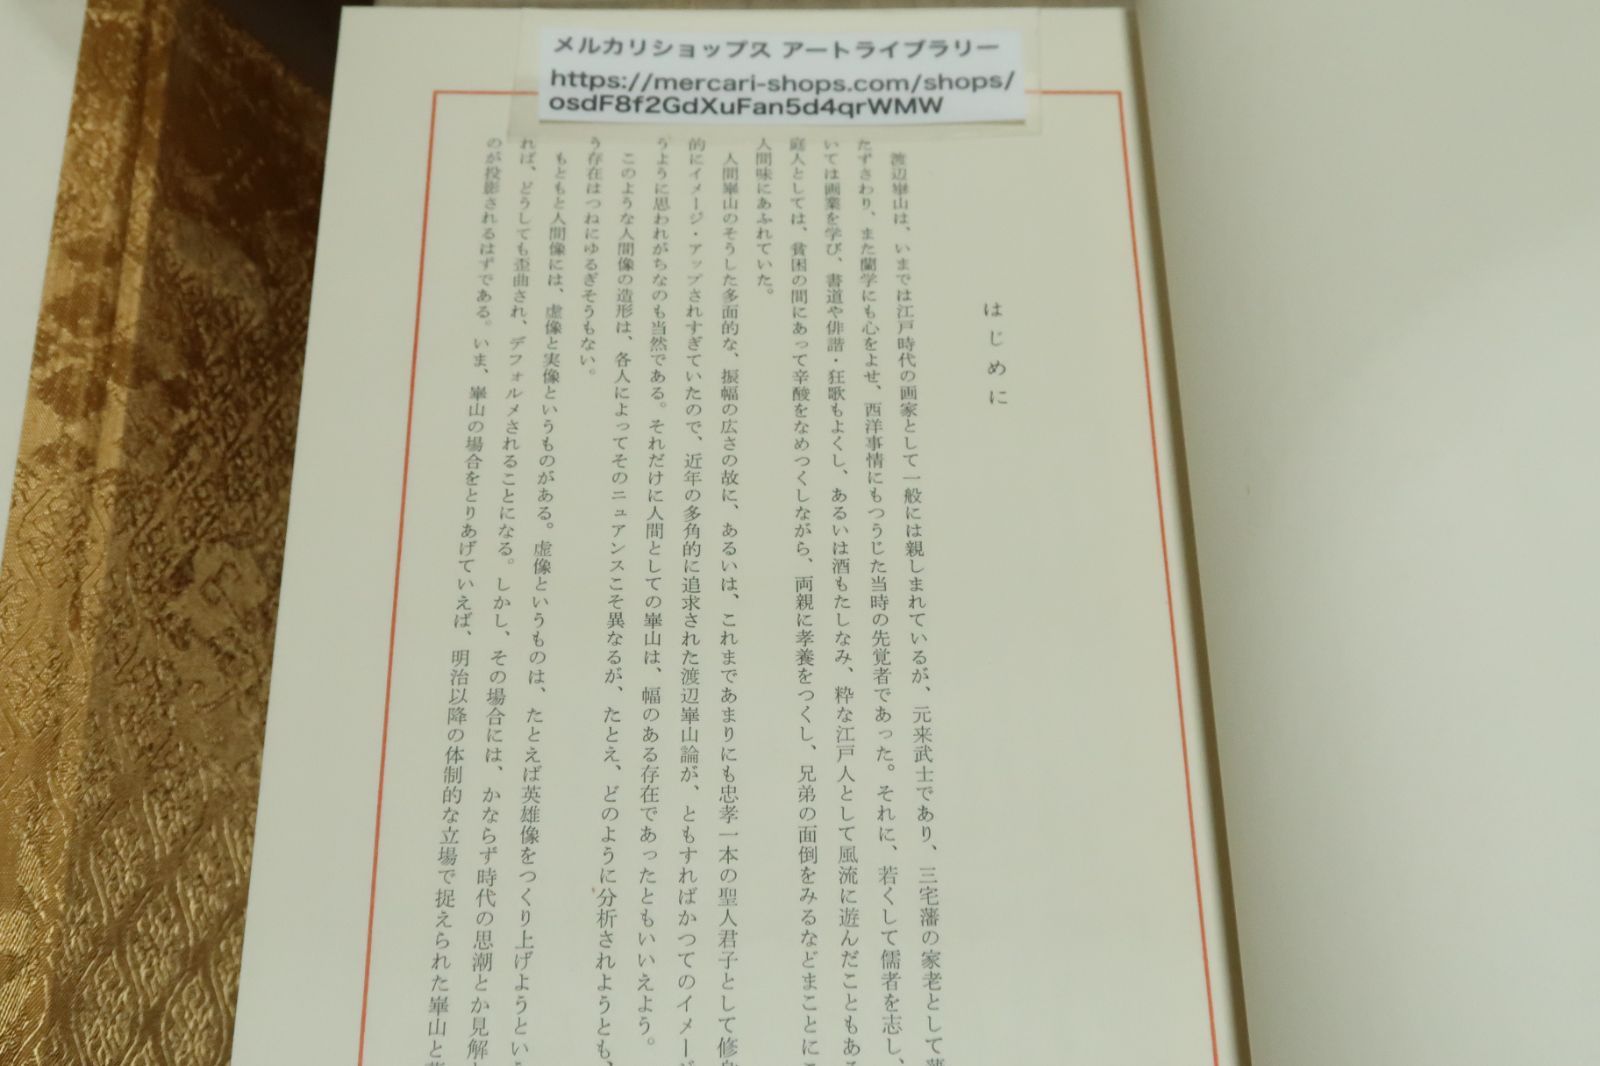 メルカリショップス アートライブラリー
https://mercari-shops.com/shops/
osdF8f2GdXuFan5d4qrWMW
はじめに
渡辺崋山は、いまでは江戸時代の画家として一般には親しまれているが、元来武士であり、三宅藩の家老として藩
たずさわり、また蘭学にも心をよせ、西洋事情にもつうじた当時の先覚者であった。それに、若くして儒者を志し、
いては画業を学び、書道や俳諧・狂歌もよくし、あるいは酒もたしなみ、粋な江戸人として風流に遊んだこともある
庭人としては、貧困の間にあって辛酸をなめつくしながら、両親に孝養をつくし、兄弟の面倒をみるなどまことにこ
人間味にあふれていた。
人間崋山のそうした多面的な、振幅の広さの故に、あるいは、これまであまりにも忠孝一本の聖人君子として修身
的にイメージ・アップされすぎていたので、近年の多角的に追求された渡辺崋山論が、ともすればかつてのイメージ
うように思われがちなのも当然である。それだけに人間としての崋山は、幅のある存在であったともいえよう。
このような人間像の造形は、各人によってそのニュアンスこそ異なるが、たとえ、どのように分析されようとも、
う存在はつねにゆるぎそうもない。
もともと人間像には、虚像と実像というものがある。虚像というものは、たとえば英雄像をつくり上げようという
れば、どうしても歪曲され、デフォルメされることになる。しかし、その場合には、かならず時代の思潮とか見解
のが投影されるはずである。いま、崋山の場合をとりあげていえば、明治以降の体制的な立場で捉えられた崋山と